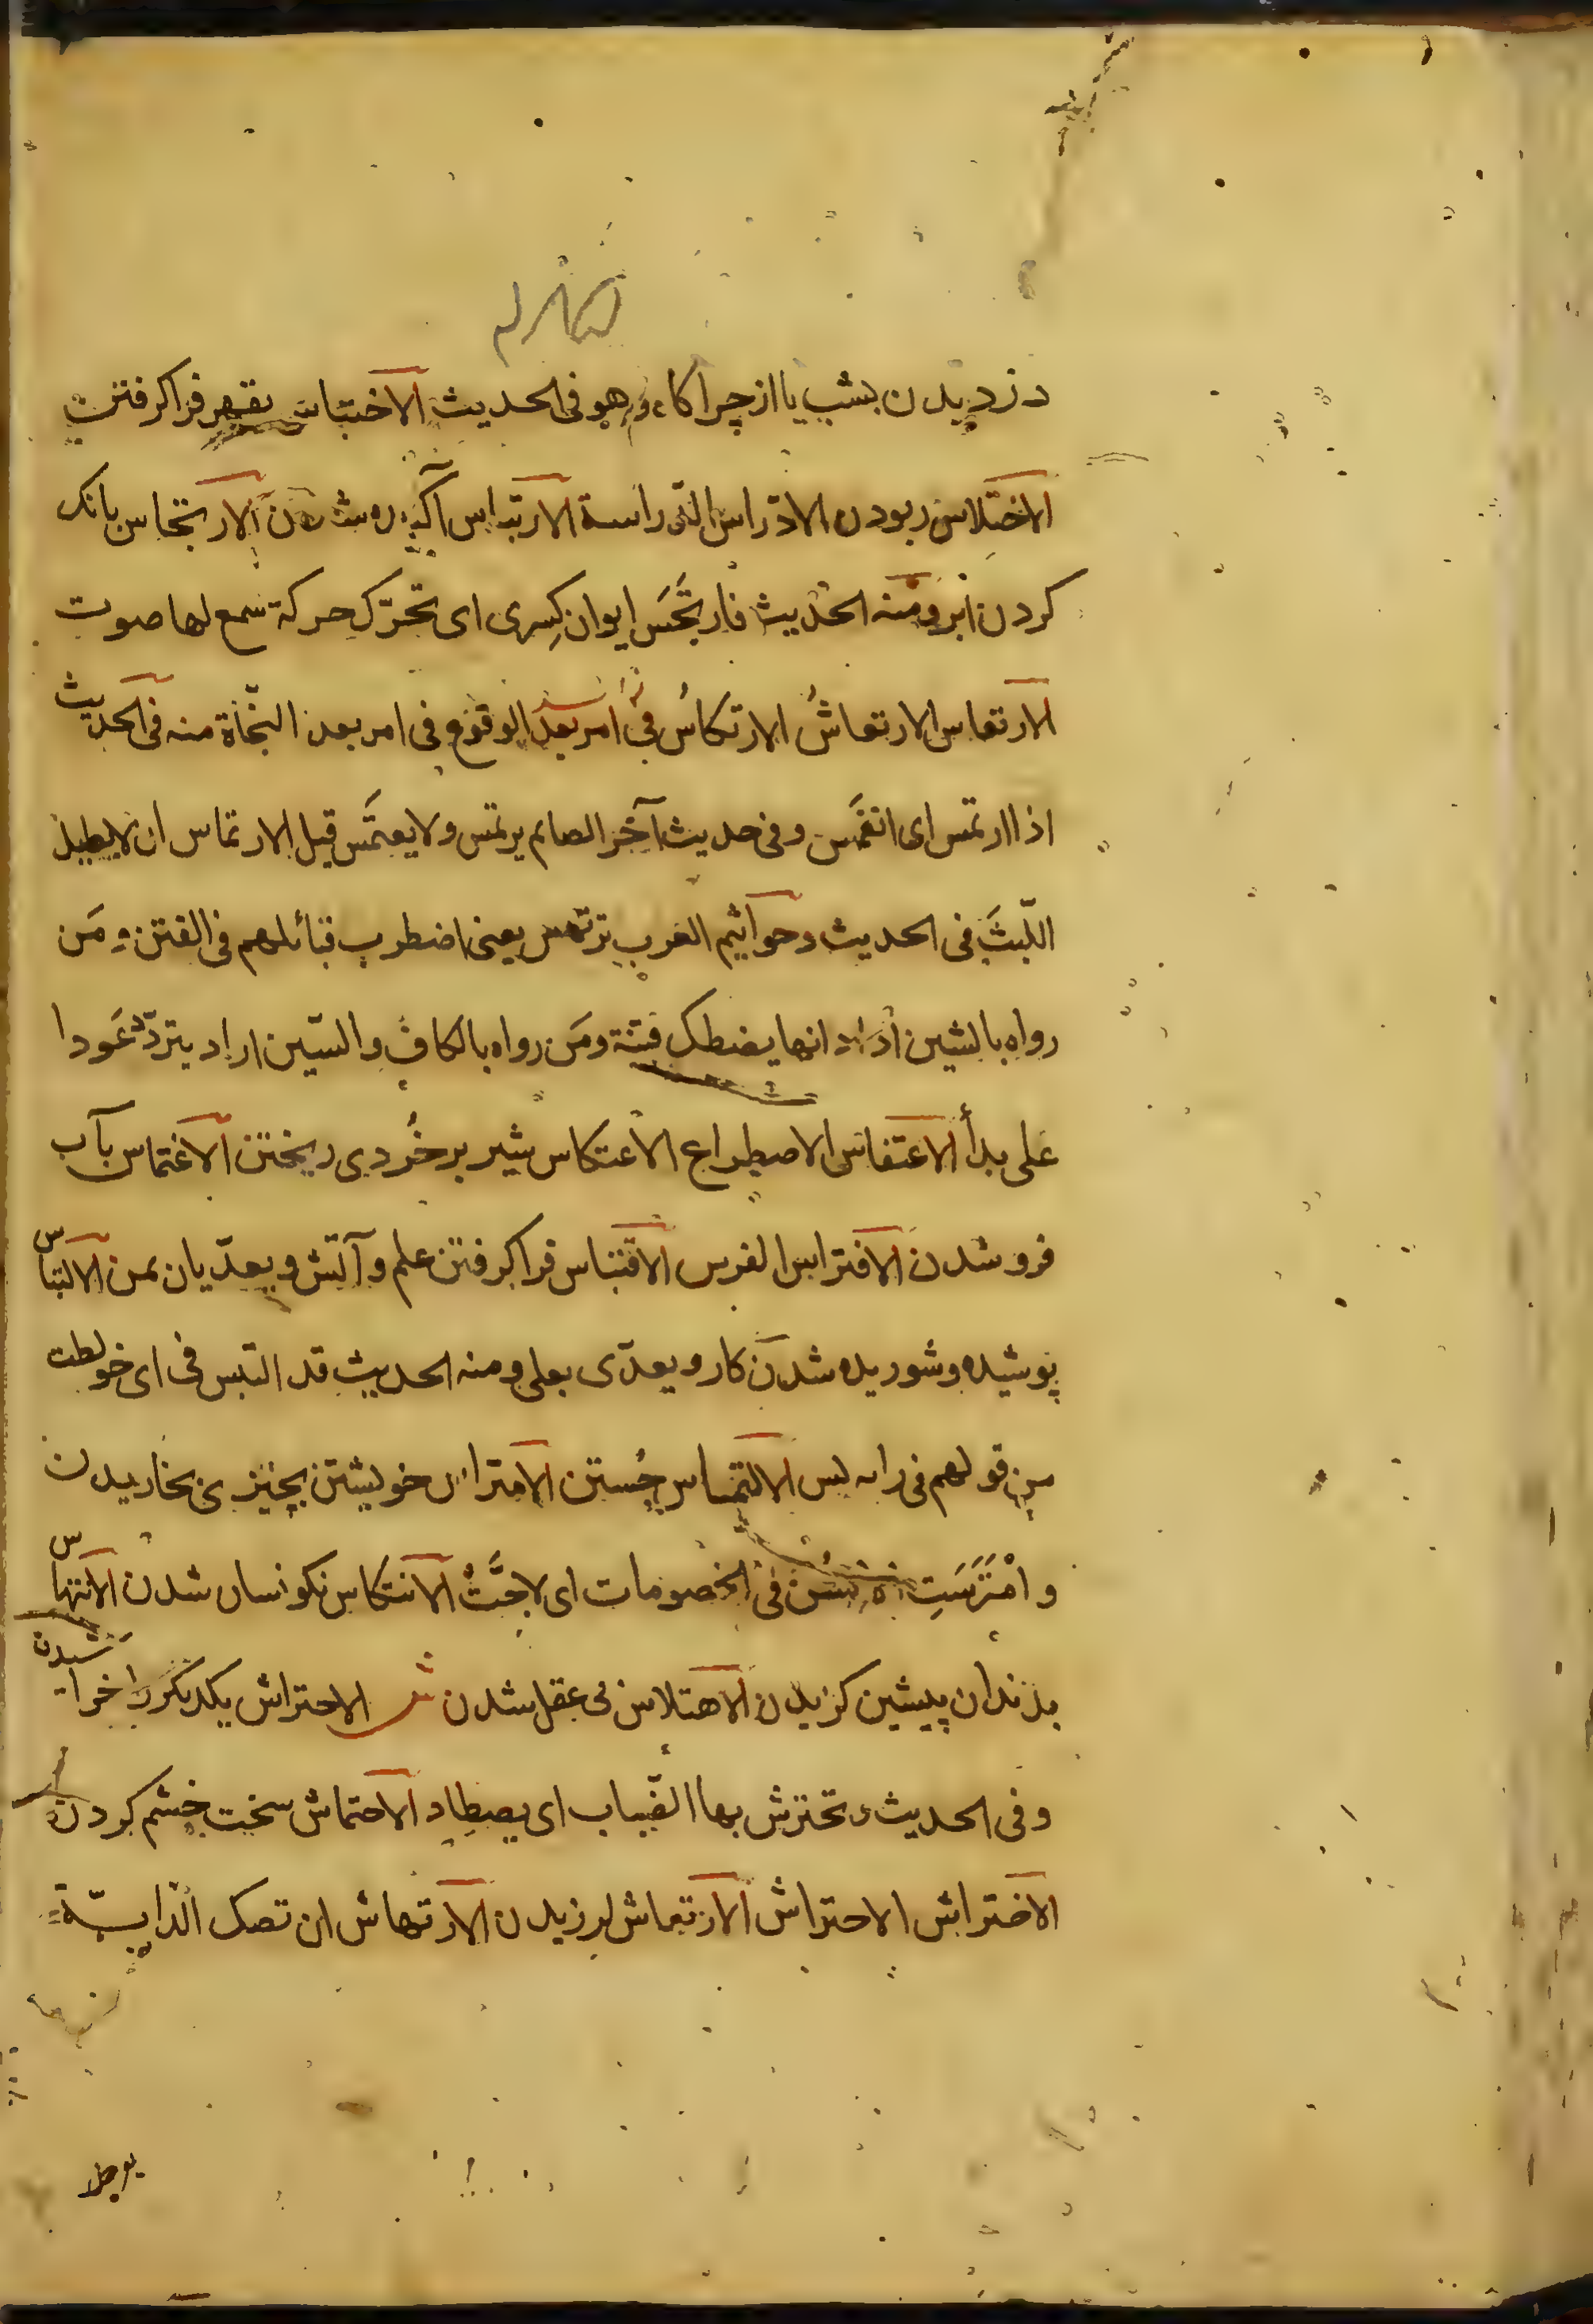 دزدیدن بشب یا از چراکاه وهو فی الحدیث الاختباس بقهر فراکرفتن
الاختلاس ربودن الادّراس الدّراسة الارتباس آکنده شدن الارتجاس بانک
کردن ابر ومنه الحدیث فارتجَسَ ایوان کِسری ای تحرّک حرکة سمع لها صوت
الارتعاس الارتعاشُ الارتکاسُ فی امر بعد الوقوع فی امر بعد النجاة منه فی الحدیث
اذا ارتمس ای انغمَسَ وفی حدیث آخر الصایم یرتمس ولا یغتمَس قیل الارتماس ان لا یطیل
اللّبثَ فی الحدیث وجراثیم العرب ترتهس یعنی اضطرب قبائلهم فی الفتن ومَن
رواه بالشین اراد انها یضطک فتنة ومَن رواه بالکاف والسّین اراد یتردّد عَودا
علی بدأ الاعتفاس الاصطراع الاعتکاس شیر بر خُردی ریختن الاغتماس بآب
فرو شدن الافتراس الفرس الاقتباس فراکرفتن علم وآتش ویعدّیان بمن الالتباس
پوشیده وشوریده شدن کار ویعدّی بعلی ومنه الحدیث قد التبس فی ای خولطت
من قولهم فی رایه لبس الالتماس جُستن الامتراس خویشتن بچیزی بخاریدن
وامْتَرَسَتِ الالسُن فی الخصومات ای لاجَّتْ الانتکاس نکوانسار شدن الانتهاس
بدندان پیشین کزیدن الاهتلاس بی عقل شدن ش الاحتراش یکدیکر را خراشیدن
وفی الحدیث وتحترش بها الضّباب ای یصطاد الاحتماش سخت خشم کردن
الاختراش الاحتراش الارتعاش لرزیدن الارتهاش ان تصک الدّابّة